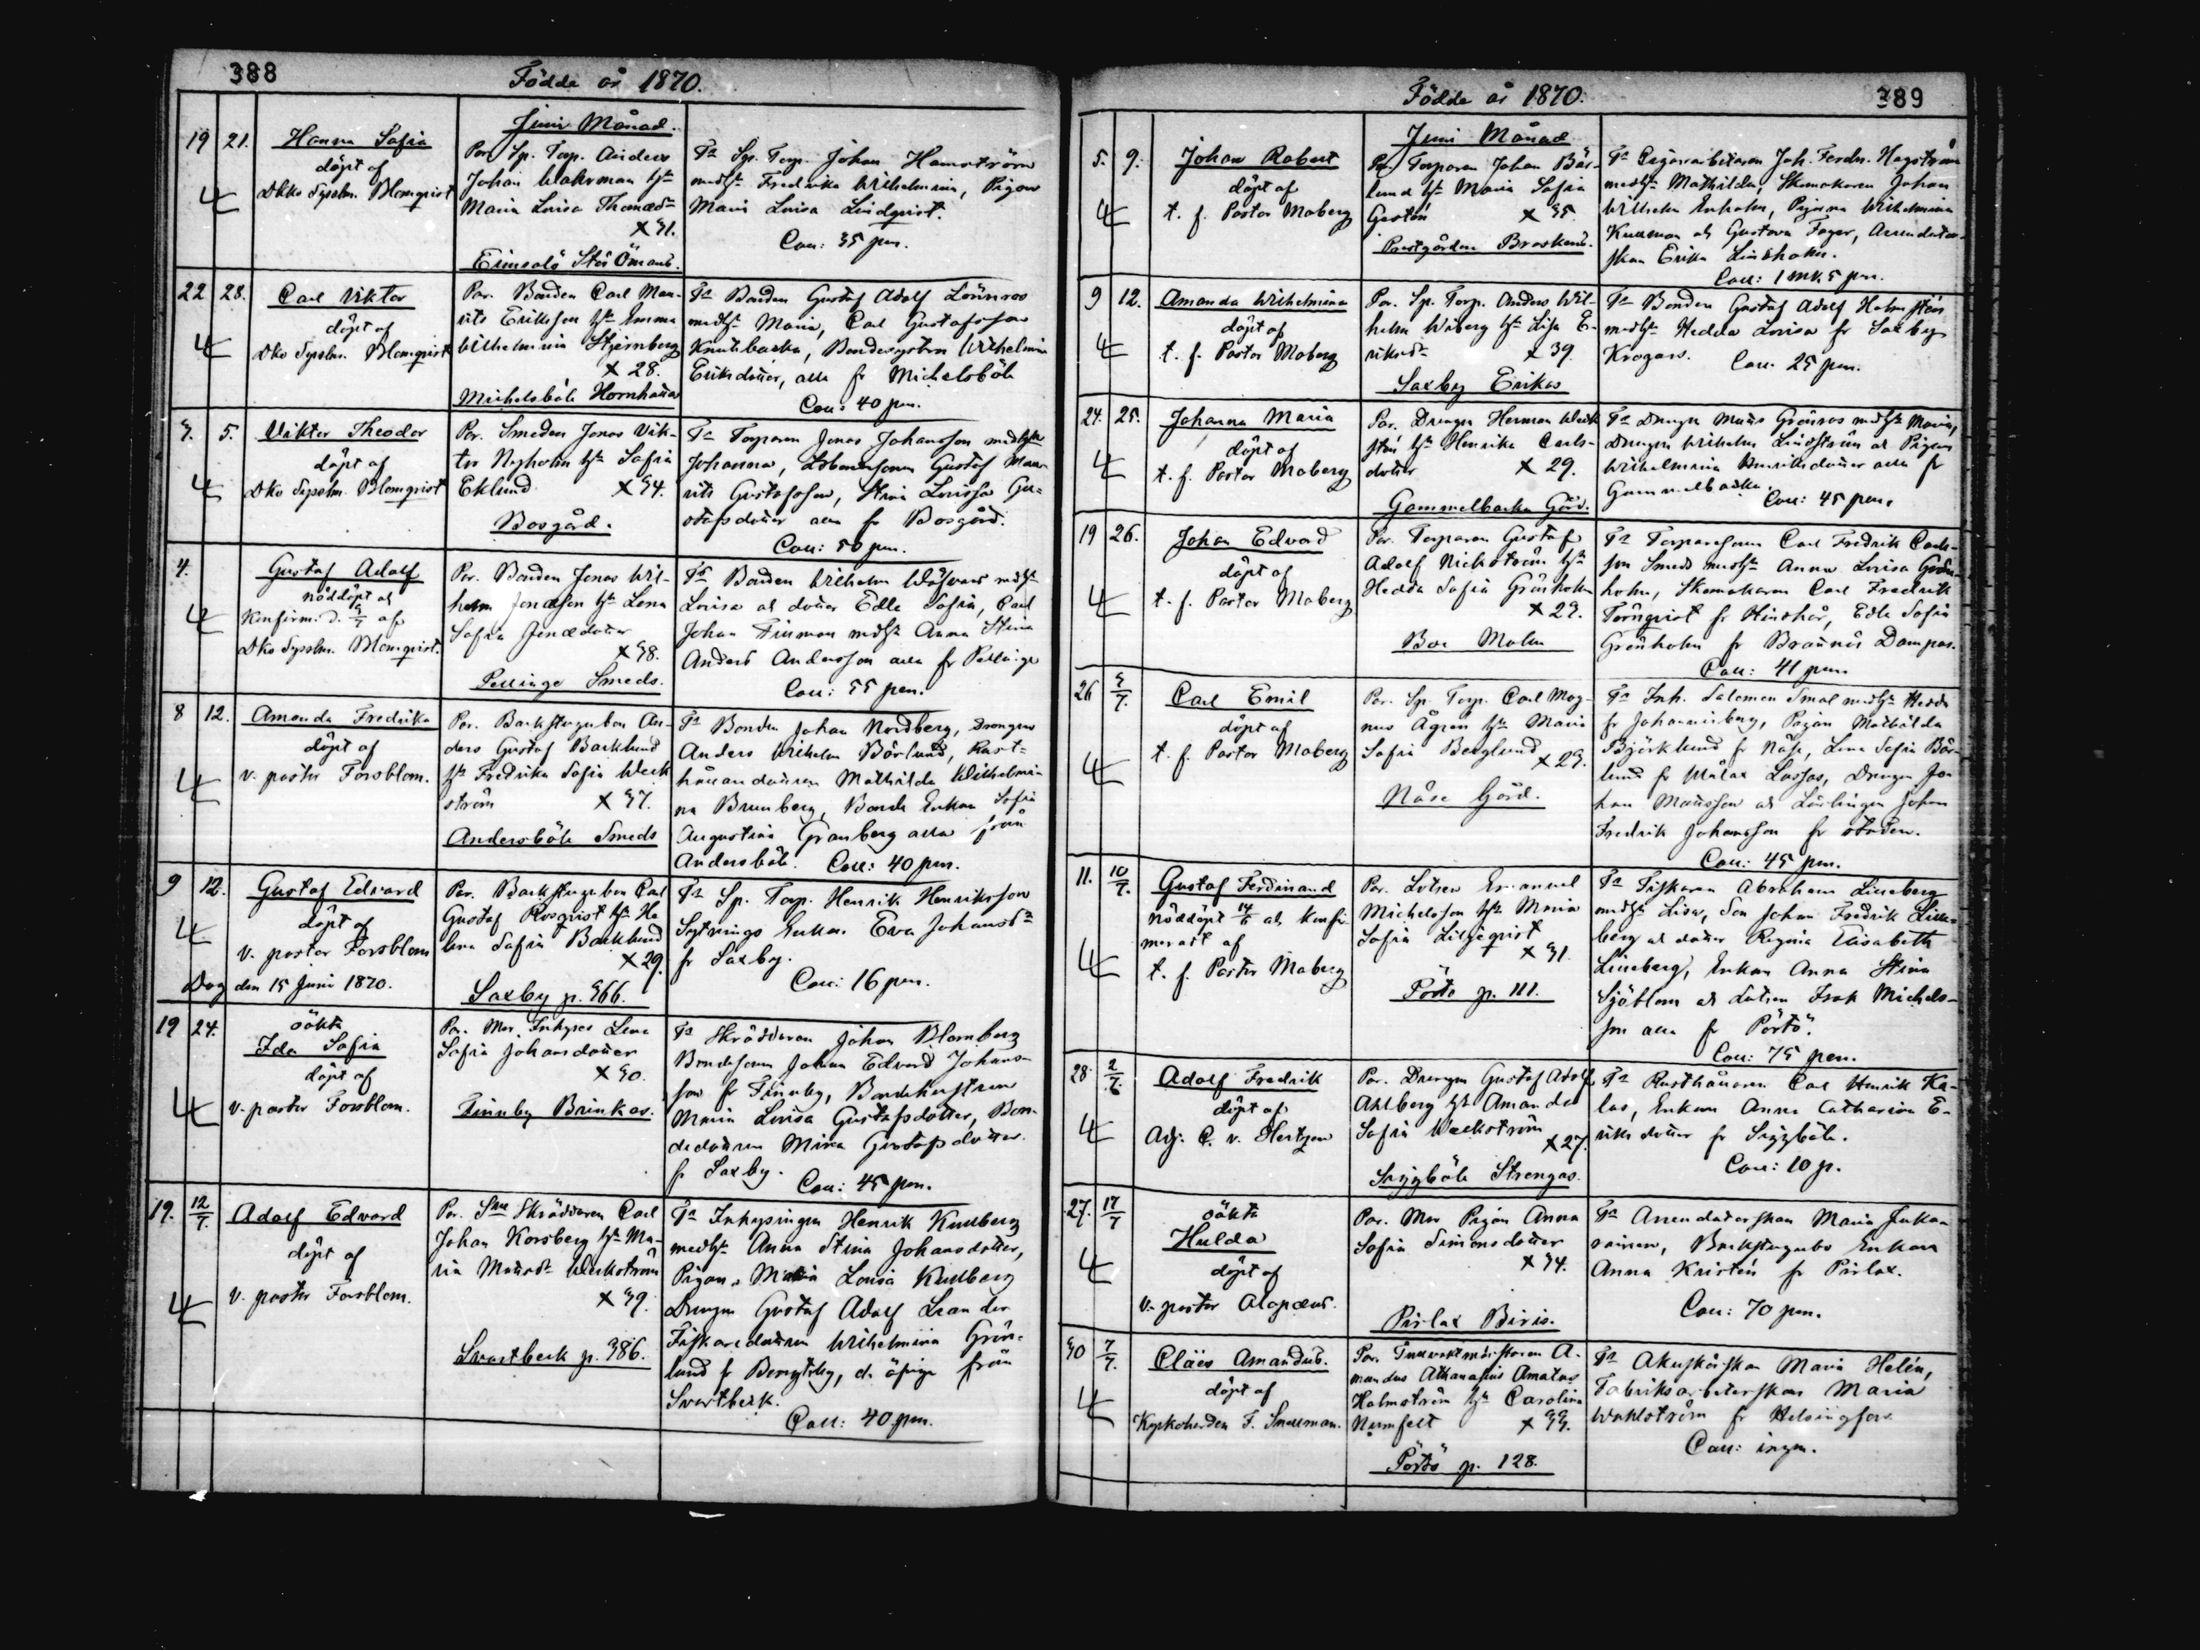 388
Födde år 1870.
Juni Månad.
19 21. Hanna Sofia
döpt af
Dkko Sysslm. Blomqvist
Par. Sp. Torp. Anders
Johan Wahrman h:n
Maria Lovisa Thomasd:r
X 31.
Emsalö Stor Ömans.
F:a Sp. Torp. Johan Hamström
med h:u Fredrika Wilhelmina, Pigan
Maria Lovisa Lindqvist.
Coll: 35 pen.
22 28. Carl Viktor
döpt af
Dko Sysslm. Blomqvist
Par. Bonden Carl Mau-
rits Eriksson h:u Emma
Wilhelmina Stjernberg
X 28.
Michelsböle Hornhatta
F:a Bonden Gustaf Adolf Lönnros
med h:u Maria, Carl Gustafsson
Knutsbacka, Bondegosten Wilhelmina
Eriksdotter, alla fr Michelsböle
Coll: 40 pen.
3. 5. Viktor Theodor
döpt af
Dko Sysslm. Blomqvist
Par. Smeden Jonas Vik-
tor Nyholm h:u Sofia
Eklund X 34.
Bosgård.
F:a Torparen Jonas Johansson med h:u
Johanna, Gustaf Mau-
rits Gustafsson, Stina Lovisa Gu-
stafsdotter alla fr Bosgård.
Coll: 50 pen.
4. Gustaf Adolf
nöddöpt och
Konfirm. d. 5/7 af
Dko Sysslm. Blomqvist.
Par. Bonden Jonas Wil-
helm Jonasson h:u Lena
Sofia Jonædotter
X 38.
Pellinge Smeds.
F:a Bonden Wilhelm Wåfvars med h:u
Lovisa och dotter Edla Sofia, Carl
Johan Finman med h:u Anna Stina
Anders Andersson alla fr Pellinge
Coll: 55 pen.
8 12. Amanda Fredrika
döpt af
v. pastor Forsblom.
Par. Backstuguban An-
ders Gustaf Backlund
h:u Fredrika Sofia Weck
ström X 37.
Andersböle Smeds
F:a Bonden Johan Nordberg, Drengen
Anders Wilhelm Börlund, Rust-
hållaredottren Mathilda Wilhelmi-
na Brunberg, Bonde Enkan Sofia
Augustina Granberg alla från
Andersböle. Coll: 40 pen.
9 12. Gustaf Edvard
döpt af
v. pastor Forsblom
Dag den 15 Juni 1870.
Par. Backstuguban Carl
Gustaf Rosqvist h:u He
lena Sofia Backlund
X 29.
Saxby p. 366.
F:a Sp. Torp. Henrik Henriksson
Sytnings Enkan Eva Johansd:r
fr Saxby.
Coll: 16 pen.
19 24. oäkta
Ida Sofia
döpt af
v. pastor Forsblom.
Par. Mor. Inhyses Lena
Sofia Johansdotter
X 30.
Finnby Brinkas.
F:a Skräddaren Johan Blomberg
Bondesonen Johan Edvard Johans-
son fr Finnby, Bondehustrun
Maria Lovisa Gustafsdotter, Bon-
dedottren Mina Gustafsdotter
fr Saxby.
Coll: 45 pen.
19. 12/7. Adolf Edvard
döpt af
v. pastor Forsblom.
Par. Skräddaren Carl
Johan Korsberg h:u Ma-
ria Matsd:r Weckström
X 39.
Svartbeck p. 386.
F:a Inhysingen Henrik Kullberg
med h:u Anna Stina Johansdotter,
Pigan Maria Lovisa Kullberg
Drengen Gustaf Adolf Leander
Fiskaredottren Wilhelmina Grön-
lund fr Bengtsby, de öfriga från
Svartbeck.
Coll: 40 pen.
389
Födde år 1870.
Juni Månad
5. 9. Johan Robert
döpt af
t. f. Pastor Moberg
Par. Torparen Johan Bär-
lund h:u Maria Sofia
Gestén X 35.
Prestgården Braskens.
F:a Cigarrarbetaren Joh. Ferdn. Hagström
med h:u Mathilda, Skomakaren Johan
Wilhelm Enholm, Pigorna Wilhelmina
Kullman och Gustava Fager, Arrendator-
skan Erika Lindholm.
Coll: 1 mk 5 pen.
9 12. Amanda Wilhelmina
döpt af
t. f. Pastor Moberg
Par. Sp. Torp. Anders Wil-
helm Wiberg h:u Lisa E-
riksd:r X 39.
Saxby Erikas
F:a Bonden Gustaf Adolf Holmstén
med h:u Hedda Lovisa fr Saxby
Krogars. Coll: 25 pen.
24. 25. Johanna Maria
döpt af
t. f. Pastor Moberg
Par. Drengen Herman Weck
stén h:u Henrika Carls-
dotter X 29.
Gammelbacka Gård.
F:a Drengen Matts Grönros med h:u Maria,
Drengen Wilhelm Lindström och Pigan
Wilhelmina Henriksdotter alla fr
Gammelbacka.
Coll: 45 pen.
19 26. Johan Edvard
döpt af
t. f. Pastor Moberg
Par. Torparen Gustaf
Adolf Nickström h:u
Hedda Sofia Grönholm
X 29.
Boe Malm
F:a Torparesonen Carl Fredrik Carls-
son Smeds med h:u Anna Lovisa Grön-
holm, Skomakaren Carl Fredrik
Törnqvist fr Hindhår, Edla Sofia
Grönholm fr Braunäs Dampas.
Coll: 41 pen.
26 3/7. Carl Emil
döpt af
t. f. Pastor Moberg
Par. Sp. Torp. Carl Mag-
nus Ågren h:u Maria
Sofia Berglund X 29.
Näse Gård.
F:a Inh. Salomon Smal med h:u Hedda
fr Johannisberg, Pigan Mathilda
Björklund fr Näse, Lena Sofia Bär-
lund fr Mulax Lassas, Drengen Jo-
han Matsson och Lärlingen Johan
Fredrik Johansson fr staden.
Coll: 45 pen.
11. 10/7. Gustaf Ferdinand
nöddöpt 14/6 och konfir-
merat af
t. f. Pastor Moberg
Par. Lotsen Emanuel
Michelsson h:u Maria
Sofia Liljeqvist
X 31.
Pörtö p. 111.
F:a Fiskaren Abraham Lineberg
med h:u Lisa, Son Johan Fredrik Line-
berg och dotter Regina Elisabeth
Lineberg, Enkan Anna Stina
Sjöblom och Lotsen Isak Michels-
son alla fr Pörtö.
Coll: 75 pen.
28 2/7. Adolf Fredrik
döpt af
Adj. C. v. Hertzen
Par. Drengen Gustaf Adolf
Ahlberg h:u Amanda
Sofia Weckström
X 27.
Siggböle Strengas.
F:a Rusthållaren Carl Henrik Ka-
las, Enkan Anna Catharina E-
riksdotter fr Siggböle.
Coll: 10 p.
27. 17/7 oäkta
Hulda
döpt af
v. pastor Alopæus.
Par. Mor Pigan Anna
Sofia Simonsdotter
X 34.
Pirlax Biris.
F:a Arrendatorskan Maria Juka-
rainen, Backstugubo Enkan
Anna Kristén fr Pirlax.
Coll: 70 pen.
30 7/7. Cläes Amandus.
döpt af
Kyrkoherden F. Snellman.
Par. Tullvaktmästaren A-
mandus Athanasius Amatus
Holmström h:u Carolina
Numfelt X 33.
Pörtö p. 128.
F:a Akuschörskan Maria Helén,
Fabriksarbeterskan Maria
Wahlström fr Helsingfors
Coll: ingen.